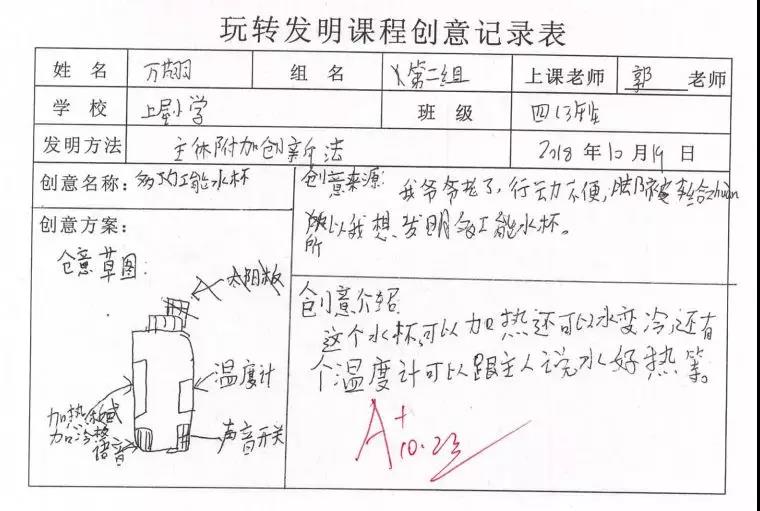 玩转发明课程创意记录表
姓 名 万翔羽 组 名 第二组 上课老师 郭 老师
学 校 上屋小学 班 级 四
发明方法 主体附加创新法 2018 年 10 月 19 日
创意名称：多功能水杯
创意来源: 我爷爷老了，行动不便，
所以我想发明多功能水杯。
所
创意方案：
创意草图：
太阳板
温度计
加热
加冷
语音
声音开关
创意介绍:
这个水杯可以加热还可以水变冷还有
个温度计可以跟主人说水好热等。
A+
10.23